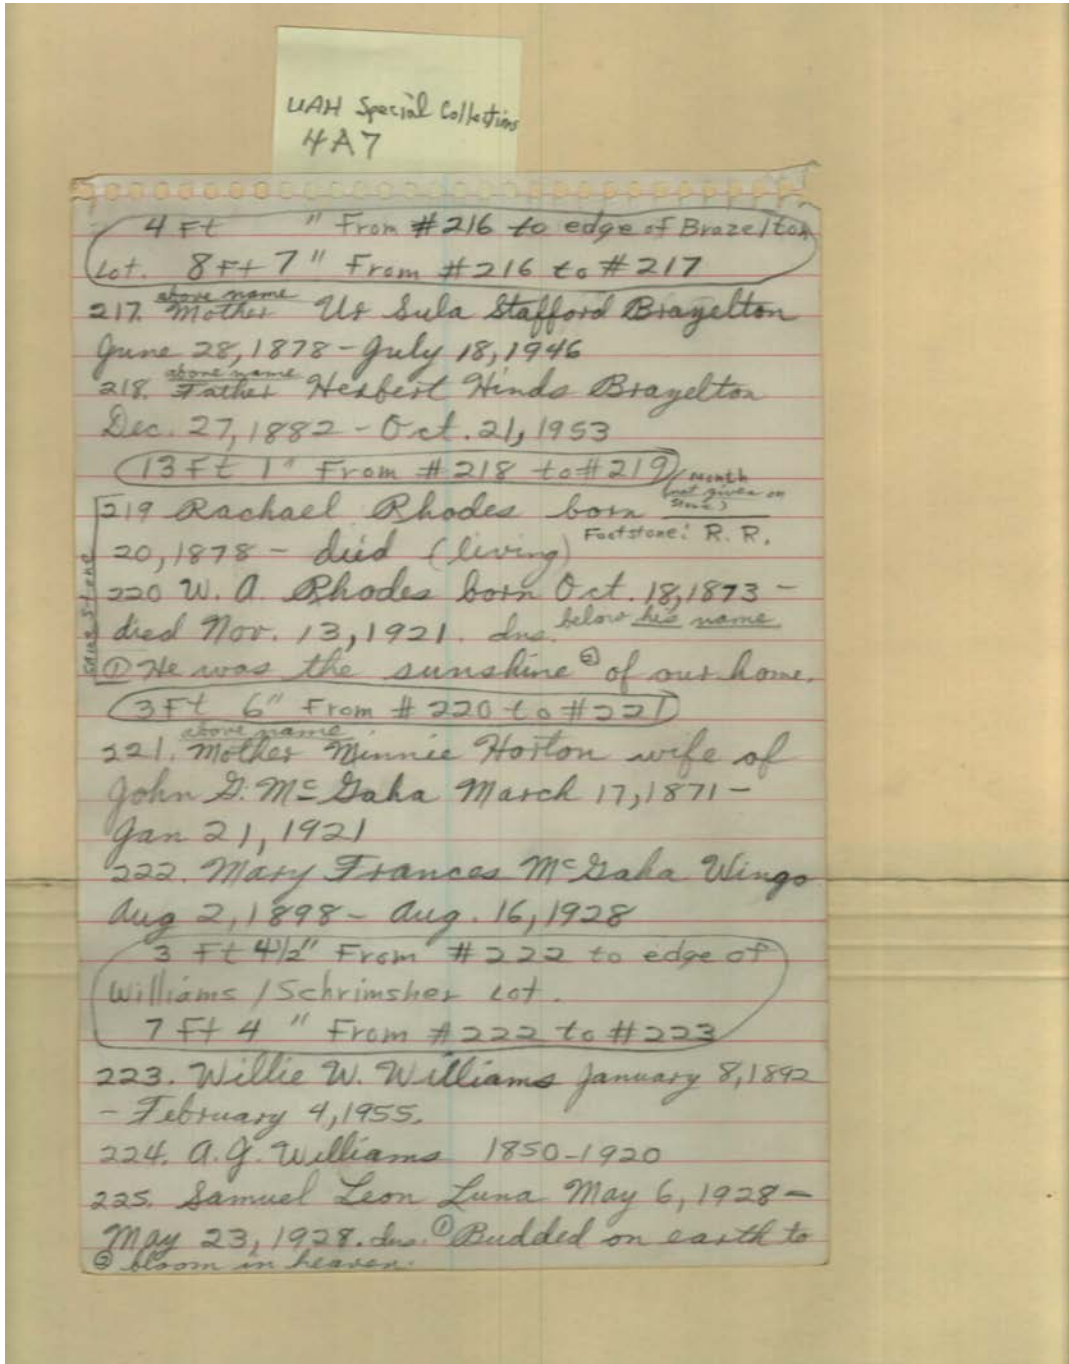 UAH Special Collections
4A7
4 Ft " From #216 to edge of Brazelton
Lot. 8 Ft 7" From #216 to #217
above name
217. Mother Ur Sula Stafford Brazelton
June 28, 1878 - July 18, 1946
above name
218. Father Herbert Hinds Brazelton
Dec. 27, 1882 - Oct. 21, 1953
13 Ft 1" From #218 to #219
(month
not given on
stone)
219 Rachael Rhodes born
Footstone: R. R.
20, 1878 - died (living)
same stone
220 W. A. Rhodes born Oct. 18, 1873 -
below his name
died Nov. 13, 1921. Ins.
① He was the sunshine ② of our home.
3 Ft 6" From #220 to #221
above name
221. Mother Minnie Horton wife of
John G. McGaha March 17, 1871 -
Jan 21, 1921
222. Mary Frances McGaha Wingo
Aug 2, 1898 - Aug. 16, 1928
3 Ft 4 1/2" From #222 to edge of
Williams / Schrimsher Lot.
7 Ft 4 " From #222 to #223
223. Willie W. Williams January 8, 1892
- February 4, 1955.
224. A. J. Williams 1850-1920
225. Samuel Leon Luna May 6, 1928 -
May 23, 1928. Ins. ① Budded on earth to
② bloom in heaven.